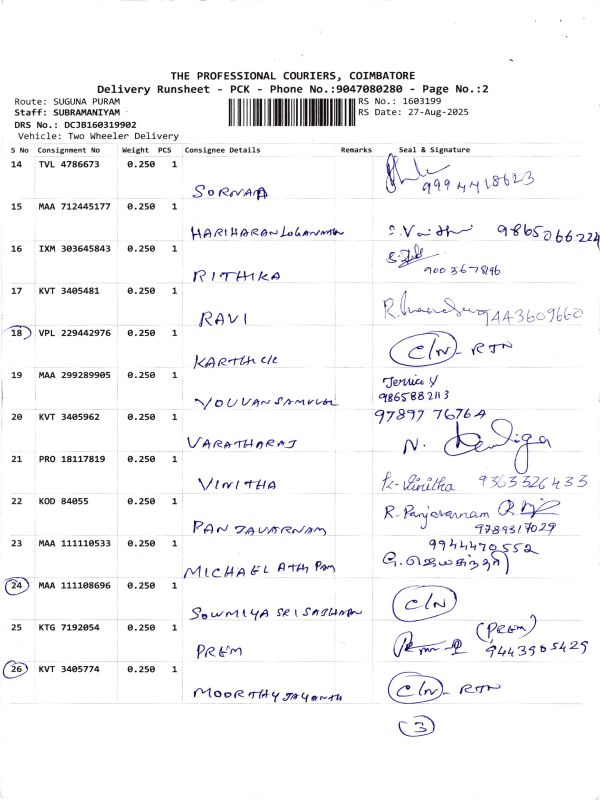 THE PROFESSIONAL COURIERS, COIMBATORE
Delivery Runsheet - PCK - Phone No.:9047080280 - Page No.:2
Route: SUGUNA PURAM
RS No.: 1603199
Staff: SUBRAMANIYAM
RS Date: 27-Aug-2025
DRS No.: DCJB160319902
Vehicle: Two Wheeler Delivery
S No Consignment No Weight PCS Consignee Details Remarks Seal & Signature
14 TVL 4786673 0.250 1
SORNAM 9994418623
15 MAA 712445177 0.250 1
HARIHARAN LOGANATHAN 9865066224
16 IXM 303645843 0.250 1
RITHIKA
17 KVT 3405481 0.250 1
RAVI 9443609660
18 VPL 229442976 0.250 1
KARTHICK C/N - RTN
19 MAA 299289905 0.250 1
9865882113
YOUVAN SAMUVAL
20 KVT 3405962 0.250 1 97897 76764
VARATHARAJ N.
21 PRO 18117819 0.250 1
VINITHA K. Vinitha 9363326433
22 KOD 84055 0.250 1
R. Panjavarnam
PANJAVARNAM 9789317029
23 MAA 111110533 0.250 1 9944470552
MICHAEL
24 MAA 111108696 0.250 1
SOWMIYA SRI C/N
25 KTG 7192054 0.250 1 (PREM)
PREM 9443905429
26 KVT 3405774 0.250 1
MOORTHY JAYANTH C/N - RTN
3